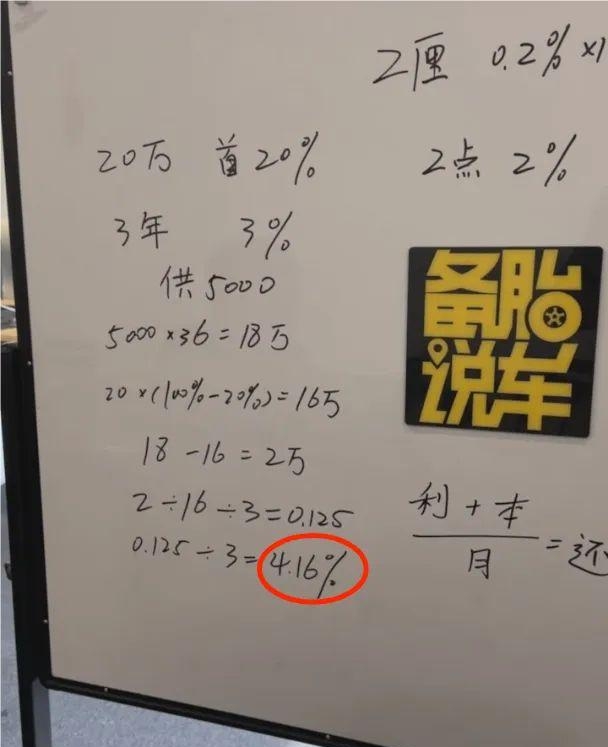 2厘 0.2%×1
20万 首20%
2点 2%
3年 3%
供5000
5000×36=18万
20×(100%-20%)=16万
18-16=2万
2÷16÷3=0.125
0.125÷3=4.16%
备胎
说车
利+本
月
=还